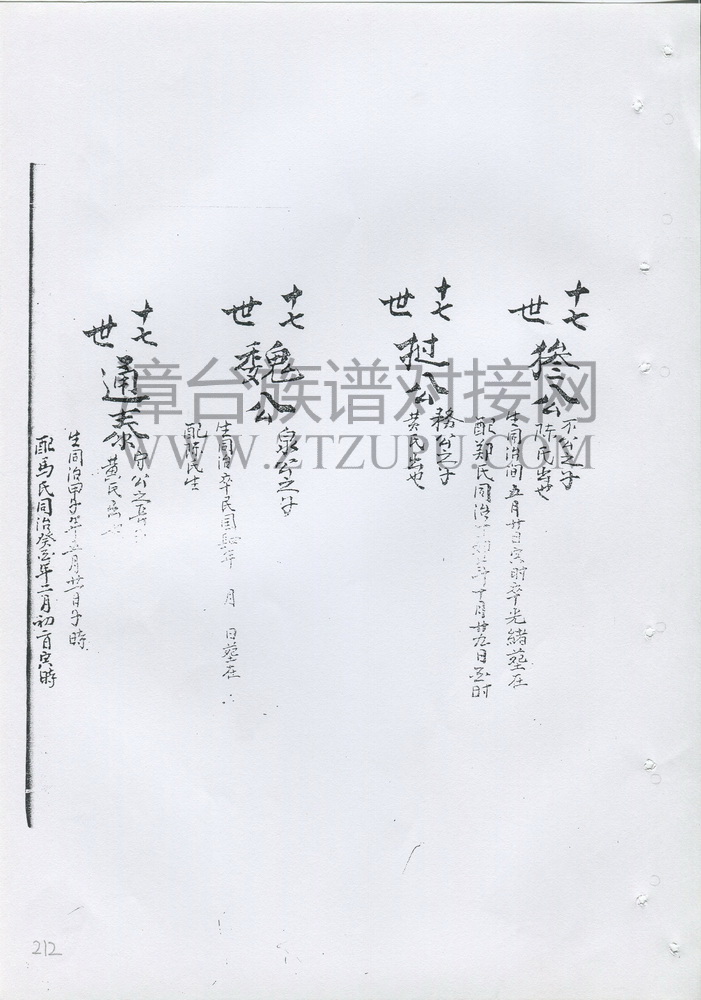 十七世
公
之子
陳氏出也
生同治 五月廿日寅时卒光緒 墓在
配郑氏同治 十月廿九日 时
十七世
公
務公之子
黄氏出也
十七世
魏公
泉公之子
生同治卒民国 年 月 日墓在
配 氏生
十七世
通泰
公之長
黄氏
生同治甲子年五月廿日子時
配馬氏同治癸亥年二月初 日寅時
章台族谱对接网
WWW.ZTZUPU.COM
212